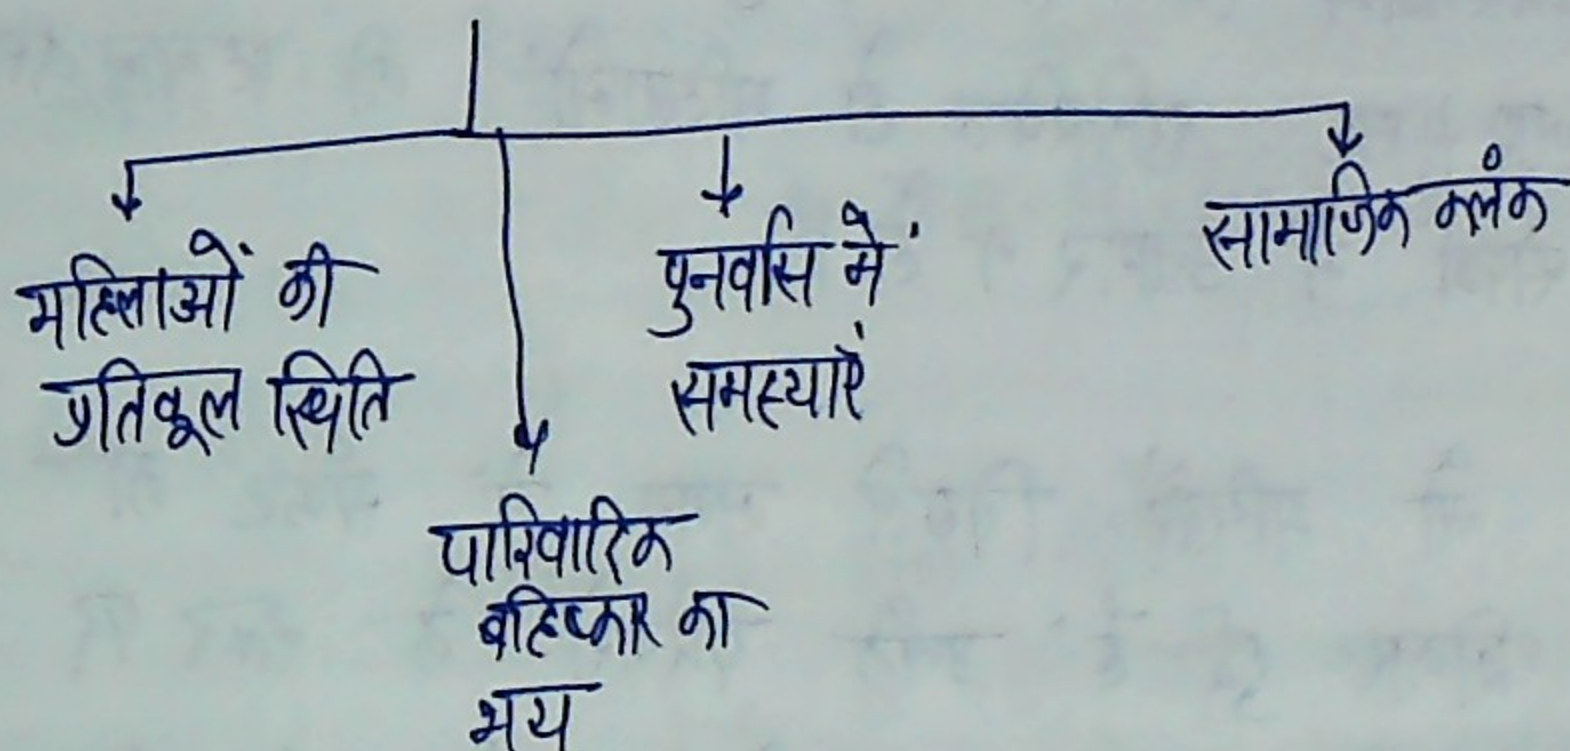 महिलाओं की
प्रतिकूल स्थिति
पारिवारिक
बहिष्कार का
भय
पुनर्वास में
समस्याएं
सामाजिक कलंक